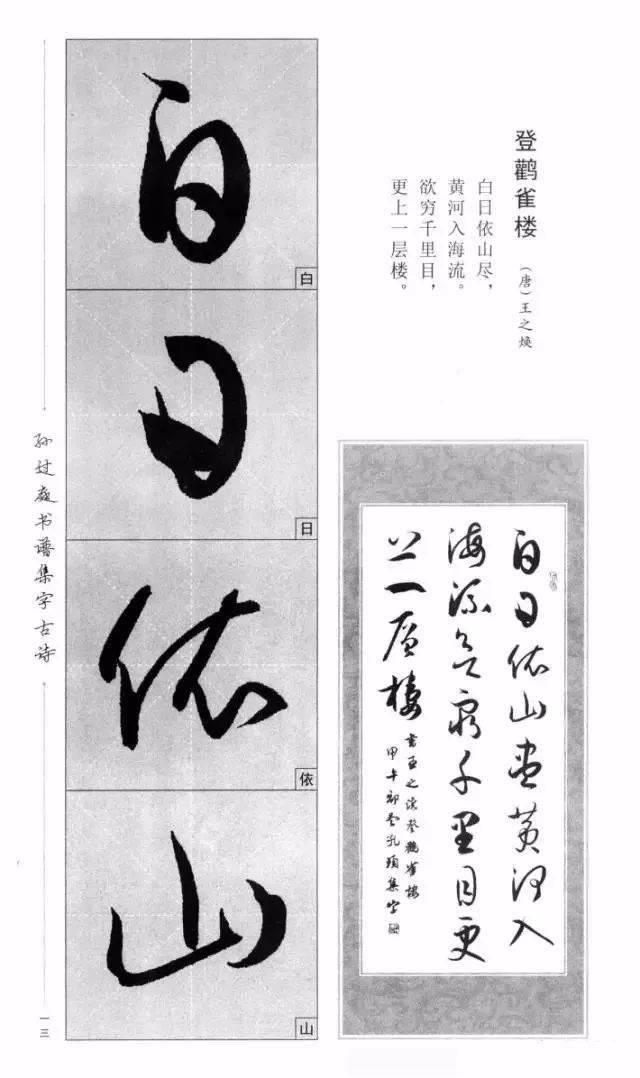 登鹳雀楼
（唐）王之焕
白日依山尽，
黄河入海流。
欲穷千里目，
更上一层楼。
白日依山尽黄河入
海流欲穷千里目更
上一层楼
书王之涣登鹳雀楼
集字
白
日
依
山
白
日
依
山
孙过庭书谱集字古诗
一三